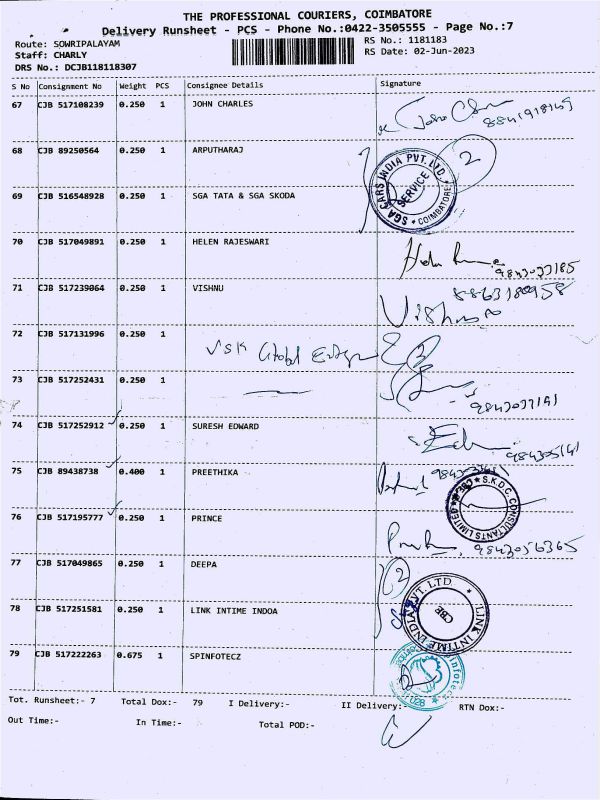 THE PROFESSIONAL COURIERS, COIMBATORE
Delivery Runsheet - PCS - Phone No.:0422-3505555 - Page No.:7
Route: SOWRIPALAYAM RS No.: 1181183
Staff: CHARLY RS Date: 02-Jun-2023
DRS No.: DCJB118118307
S No Consignment No Weight PCS Consignee Details Signature
67 CJB 517108239 0.250 1 JOHN CHARLES
68 CJB 89250564 0.250 1 ARPUTHARAJ 2
SGA CARS INDIA PVT. LTD. SERVICE * COIMBATORE *
69 CJB 516548928 0.250 1 SGA TATA & SGA SKODA
70 CJB 517049891 0.250 1 HELEN RAJESWARI
71 CJB 517239064 0.250 1 VISHNU Vishnu
72 CJB 517131996 0.250 1 VSK Global
73 CJB 517252431 0.250 1
9843037141
74 CJB 517252912 0.250 1 SURESH EDWARD
75 CJB 89438738 0.400 1 PREETHIKA
S.K.D.C. CONSULTANTS LIMITED CBE
76 CJB 517195777 0.250 1 PRINCE 9843056365
77 CJB 517049865 0.250 1 DEEPA 2
78 CJB 517251581 0.250 1 LINK INTIME INDOA
LINK INTIME INDIA PVT. LTD. CBE
79 CJB 517222263 0.675 1 SPINFOTECZ
Tot. Runsheet:- 7 Total Dox:- 79 I Delivery:- II Delivery:- RTN Dox:-
Out Time:- In Time:- Total POD:-